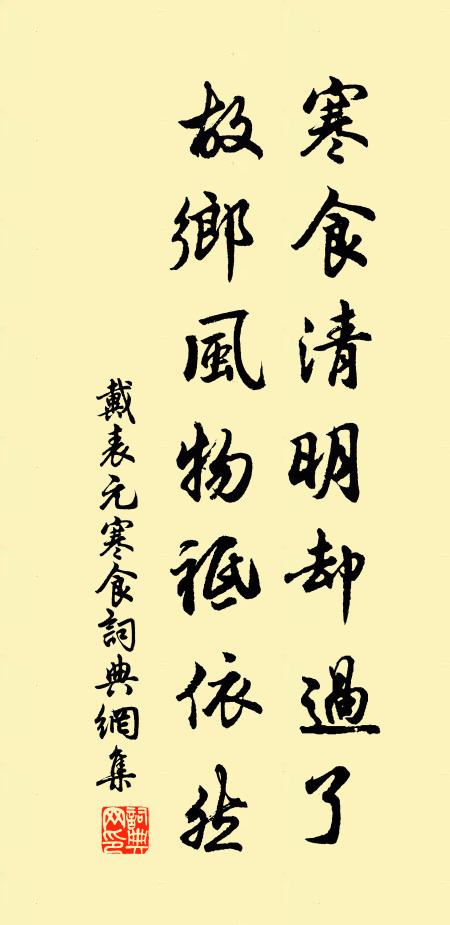 寒食清明却過了
故鄉風物祗依然
戴表元寒食詞典網集
詞典網印